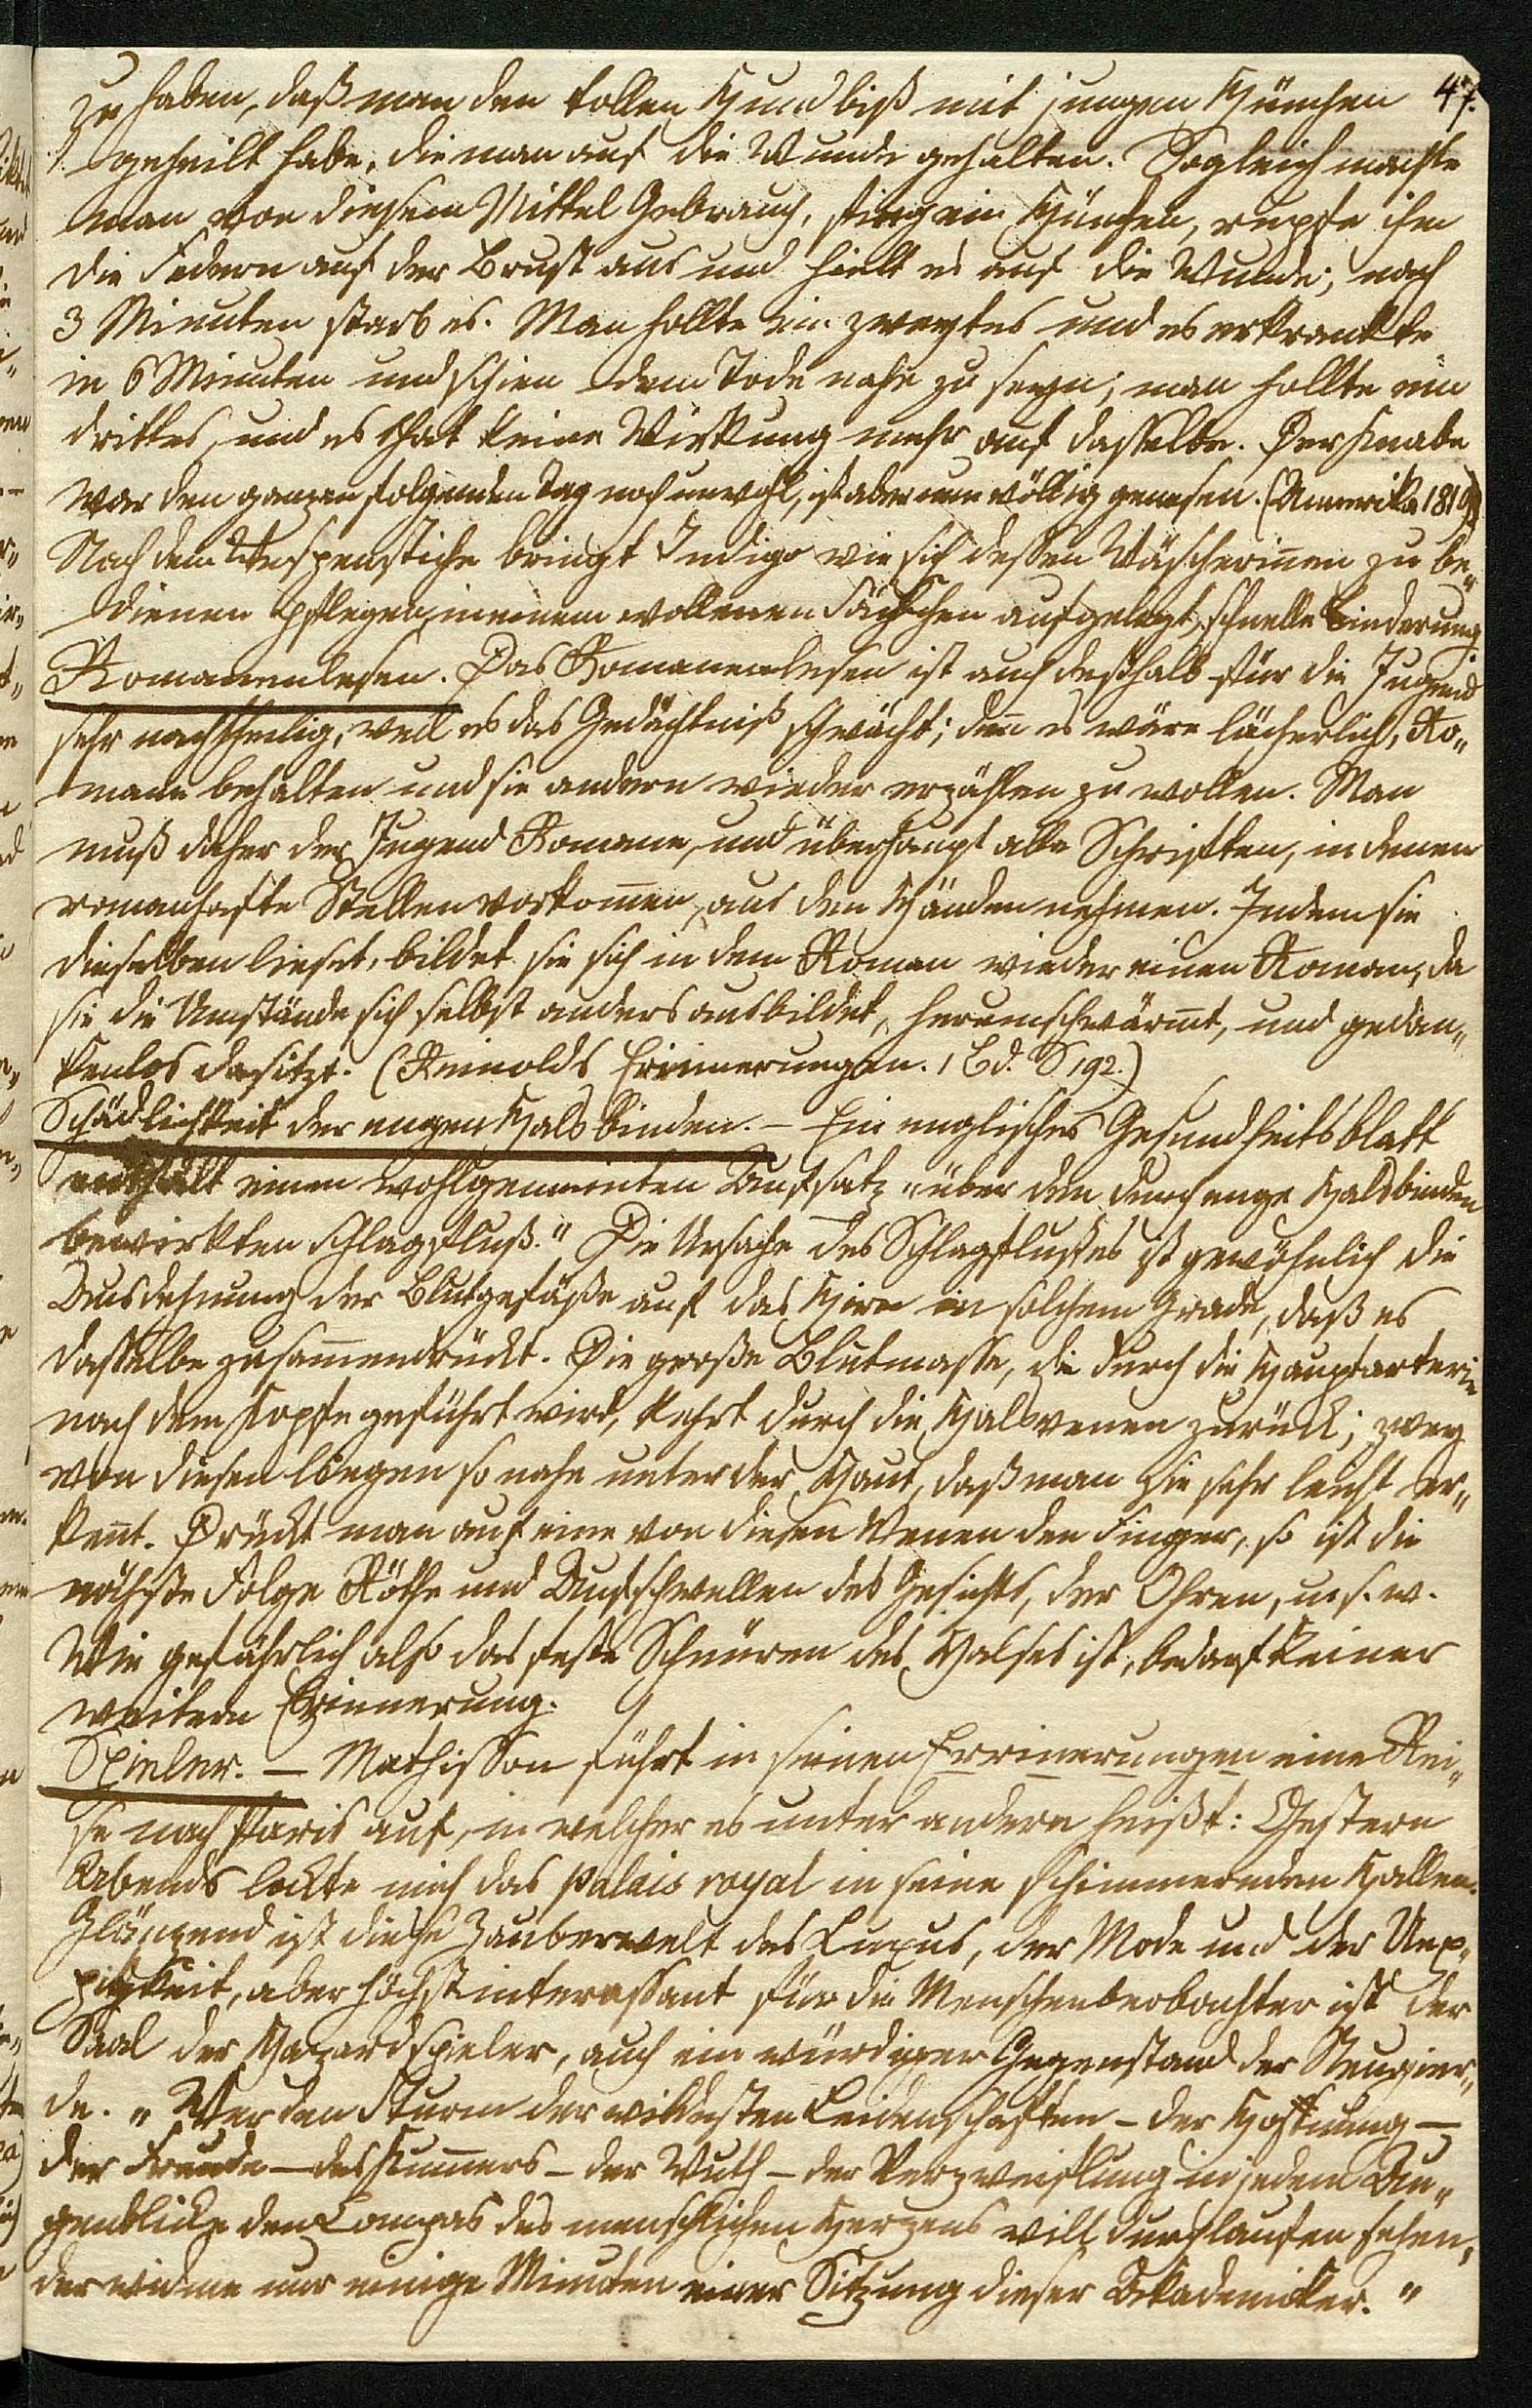 47.
zu haben, daß man den tollen Hundbiß mit jungen Hünchen
geheilt habe, die man auf die Wunde gehalten. Sogleich machte
man von diesem Mittel Gebrauch, fieng ein Hünchen, rupfte ihm
die Federn auf der Brust aus und hielt es auf die Wunde; nach
3 Minuten starb es. Man hollte ein zweytes und es erkrankte
in 6 Minuten und schien dem Tode nahe zu seyn; man hollte ein
drittes, und es that keine Wirkung mehr auf dasselbe. Der Knabe
war den ganzen folgenden Tag noch unwohl, ist aber nun völlig genesen. (Ammerika 1819)
Nach dem Wespenstiche bringt Indigo wie sich dessen Wäscherinnen zu be„
dienen pflegen, in einem wollenen Säckchen aufgelegt, schnelle Linderung
Romanenlesen. Das Romanenlesen ist auch deßhalb für die Jugend
sehr nachtheilig, weil es das Gedächtniß schwächt; denn es wäre lächerlich, Ro„
mane behalten und sie andern wieder erzählen zu wollen. Man
muß daher der Jugend Romane, und überhaupt alle Schriften, in denen
romanhafte Stellen vorkommen, aus den Händen nehmen. Indem sie
dieselben lieset, bildet sie sich in dem Roman wieder einen Roman, da
sie die Umstände sich selbst anders ausbildet, herumschwärmt, und gedan„
kenlos dasitzt. (Reinolds Erinnerungen. 1 Bd. S 192.)
Schädlichkeit der engen Halsbinden. – Ein englisches Gesundheitsblatt
enthält einen wohlgemeinten Aufsatz „über den durch enge Halsbinden
bewirkten Schlagfluß." Die Ursache des Schlagflusses ist gewöhnlich die
Ausdehnung der Blutgefäße auf das Hirn in solchem Grade, daß es
dasselbe zusammendrückt. Die große Blutmasse, die durch die Hauptarterie
nach dem Kopfe geführt wird, kehrt durch die Halsvenen zurück; zwey
von diesen liegen so nahe unter der Haut, daß man sie sehr leicht er„
kennt. Drückt man auf eine von diesen Venen den Finger, so ist die
nächste Folge Röthe und Aufschwellen des Gesichts, der Ohren, u. s. w.
Wie gefährlich also das feste Schnüren des Halses ist, bedarf keiner
weitern Erinnerung.
Spieler. – Mathisson führt in seinen Errinerungen eine Rei„
se nach Paris auf, in welcher es unter andern heißt: Gestern
Abends lockte mich das palais royal in seine schimmernden Hallen.
Glänzend ist diese Zauberwelt des Luxus, der Mode und der Uep„
pigkeit, aber höchst interessant für die Menschenbeobachter ist der
Saal der Hazardspieler, auch ein würdiger Gegenstand der Neugier„
de. „Wer den Sturm der wildesten Leidenschaften – der Hoffnung –
der Freude – des Kummers – der Wuth – der Verzweiflung in jedem Au„
genblicke den Compas des menschlichen Herzens will durchlaufen sehen,
der widme nur einige Minuten einer Sitzung dieser Akademicker."